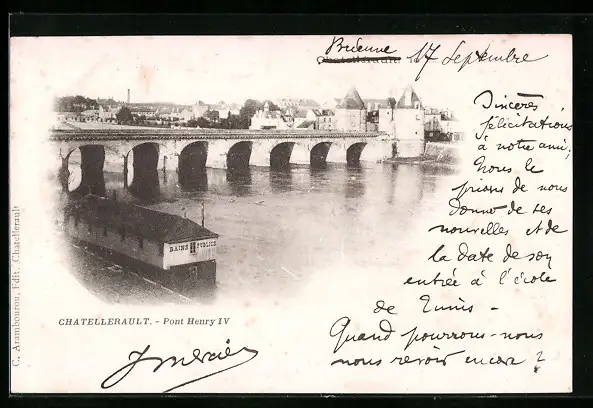 Brienne
Chatellerault, le 17 Septembre
Sincères
félicitations
à notre ami,
Nous le
prions de nous
donner de ses
nouvelles et de
la date de son
entrée à l'école
de Tunis -
Quand pourrons-nous
nous revoir encore ?
BAINS PUBLICS
CHATELLERAULT. - Pont Henry IV
J Mercier
C. Arambourou, Edit. Chatellerault